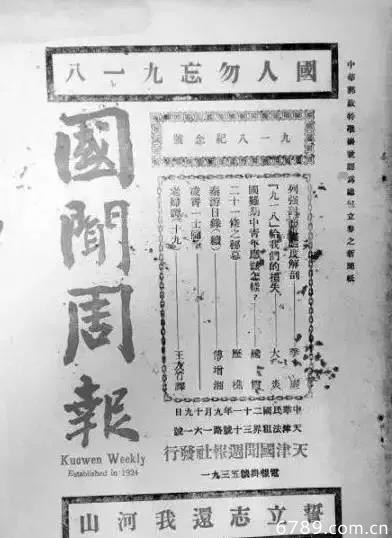 國人勿忘九一八
中華郵政特準掛號認為總包立券之新聞紙
九一八紀念號
列強 態度解剖 李
「九一八」給我們的損失 大炎
國難期中青年應該怎樣？
二十一條之秘幕 歷樵
秦游日錄（續） 傅增湘
凌霄一士隨筆
老婦譚（十九） 王 竹譯
國聞周報
Kuowen Weekly
Established in 1924
中華民國二十一年九月十九日
天津法租界三十號路一六一號
天津國聞週報社發行
電報掛號五三九一
誓立志還我河山
6789.com.cn